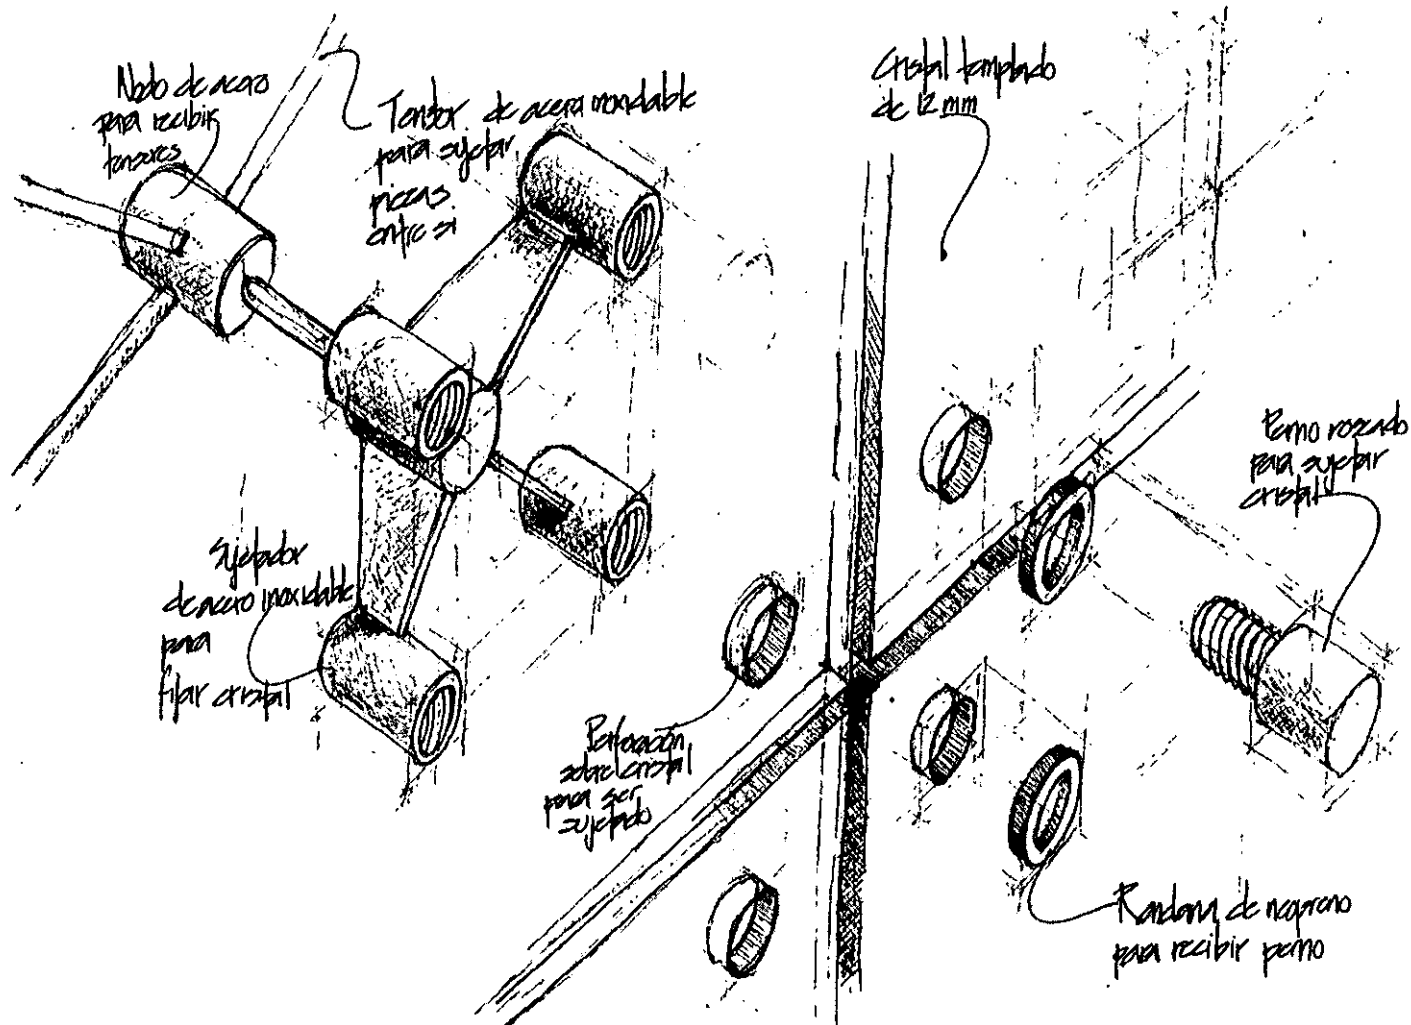 Nodo de acero
para recibir
tensores
Tensor de acero inoxidable
para sujetar
piezas
entre si
Cristal templado
de 12 mm
Perno roscado
para sujetar
cristal
Sujetador
de acero inoxidable
para
fijar cristal
Perforación
sobre cristal
para ser
sujetado
Rondana de neopreno
para recibir perno